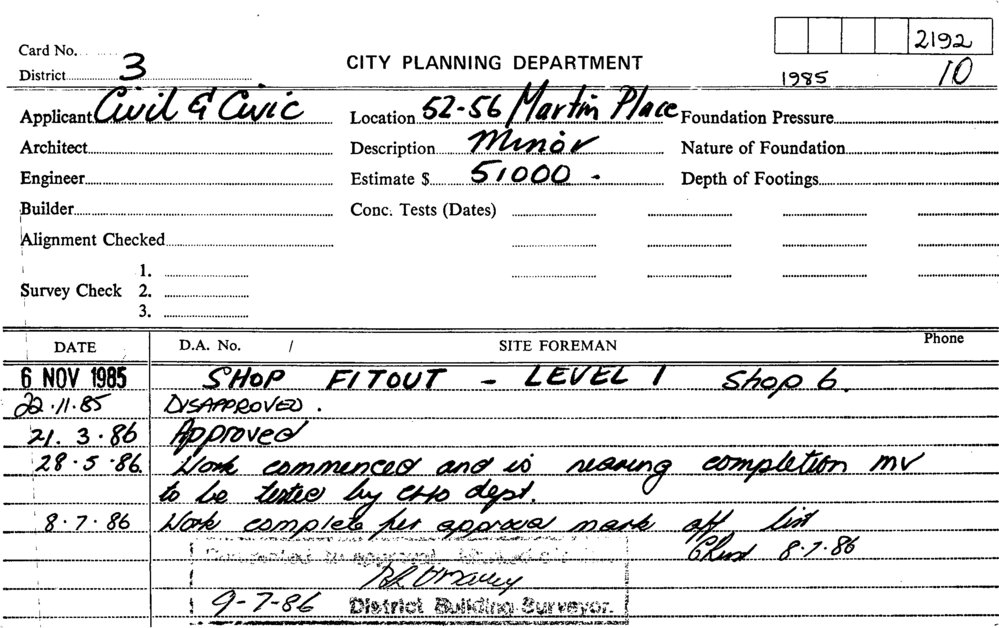 2192
Card No.
District 3
CITY PLANNING DEPARTMENT
1985 10
Applicant Civil & Civic
Location 52-56 Martin Place
Foundation Pressure
Architect
Description Minor
Nature of Foundation
Engineer
Estimate $ 51000 -
Depth of Footings
Builder
Conc. Tests (Dates)
Alignment Checked
1.
Survey Check 2.
3.
DATE D.A. No. / SITE FOREMAN Phone
6 NOV 1985 SHOP FITOUT - LEVEL 1 Shop 6.
22.11.85 DISAPPROVED.
21.3.86 Approved
28.5.86 Work commenced and is nearing completion mv
to be tested by CHO dept.
8.7.86 Work complete per approval mark off list
8.7.86
9-7-86 District Building Surveyor.